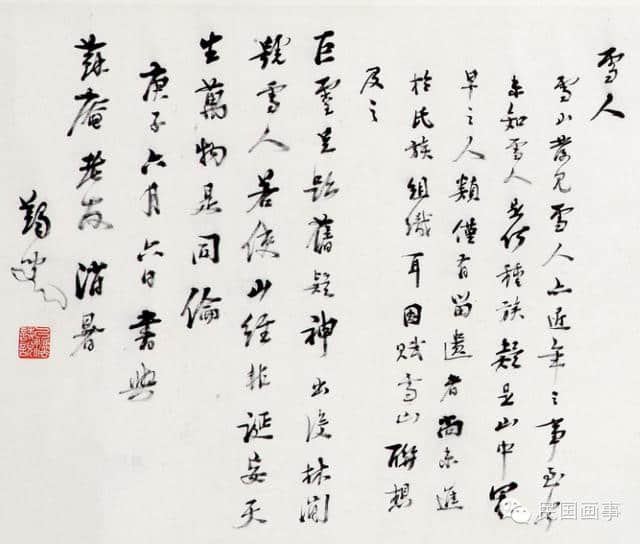 雪人
雪山發見雪人亦近年之事至今
未知雪人是何種族疑是山中最
早之人類僅有留遺者尚未進
於氏族組織耳因賦雪山聯想
及之
巨靈足跡舊疑神出沒林間
號雪人若使山經非誕妄天
生萬物是同倫
庚子六月六日書與
蘇庵老友消暑
蠲叟
民国画事